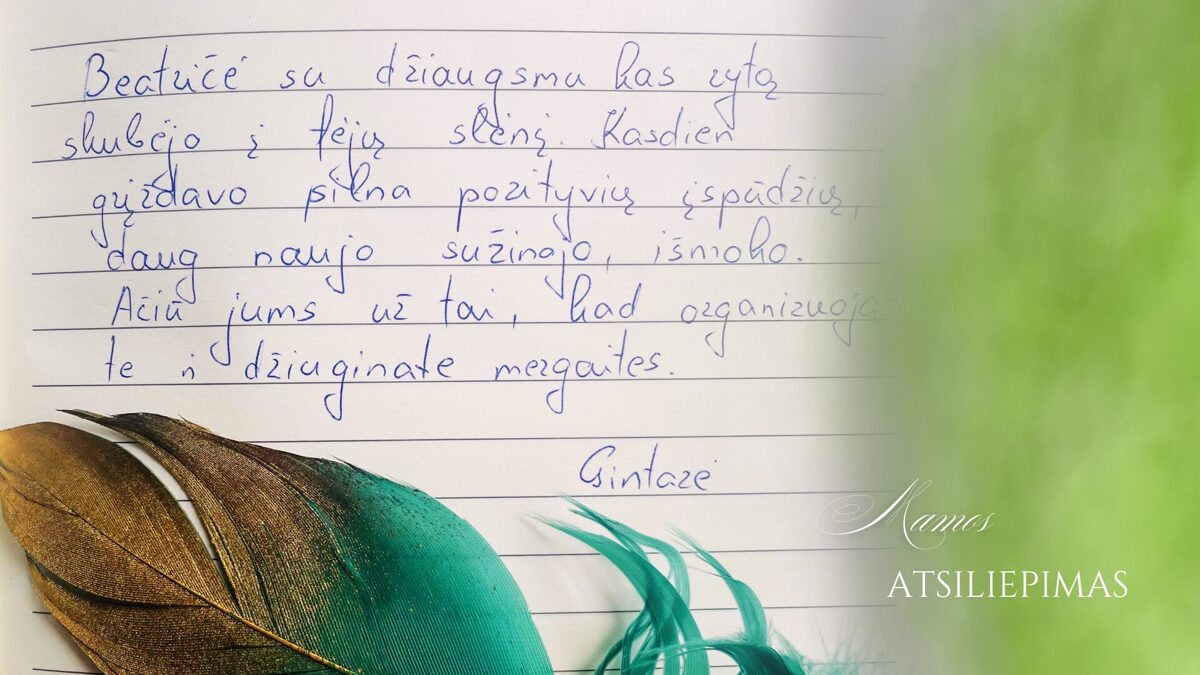 Beatričė su džiaugsmu kas rytą
skubėjo į fėjų slėnį. Kasdien
grįždavo pilna pozityvių įspūdžių,
daug naujo sužinojo, išmoko.
Ačiū jums už tai, kad organizuoja
te ir džiuginate mergaites.
Gintarė
Mamos
ATSILIEPIMAS